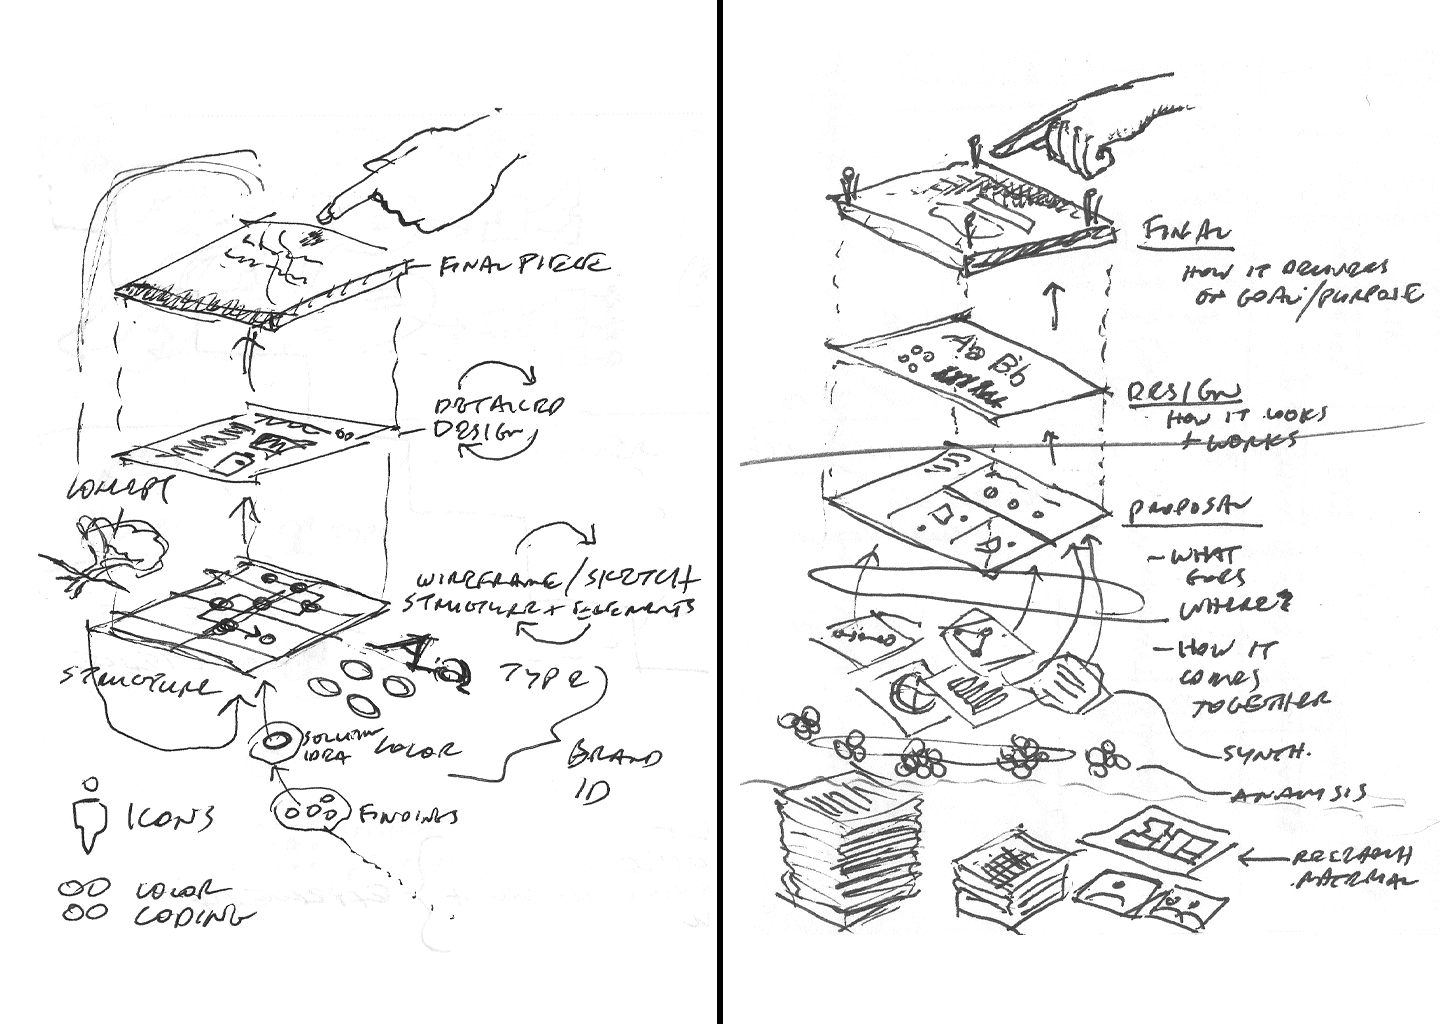 FINAL PIECE
DETAILED
DESIGN
CONCEPT
WIREFRAME/SKETCH
STRUCTURE + ELEMENTS
STRUCTURE
Aa
TYPE
SOLUTION
IDEA
COLOR
BRAND
ID
ICONS
FINDINGS
COLOR
CODING
FINAL
HOW IT DELIVERS
ON GOAL/PURPOSE
Aa Bb
DESIGN
HOW IT LOOKS
+ WORKS
PROPOSAL
- WHAT
GOES
WHERE?
- HOW IT
COMES
TOGETHER
SYNTH.
ANALYSIS
RESEARCH
MATERIAL